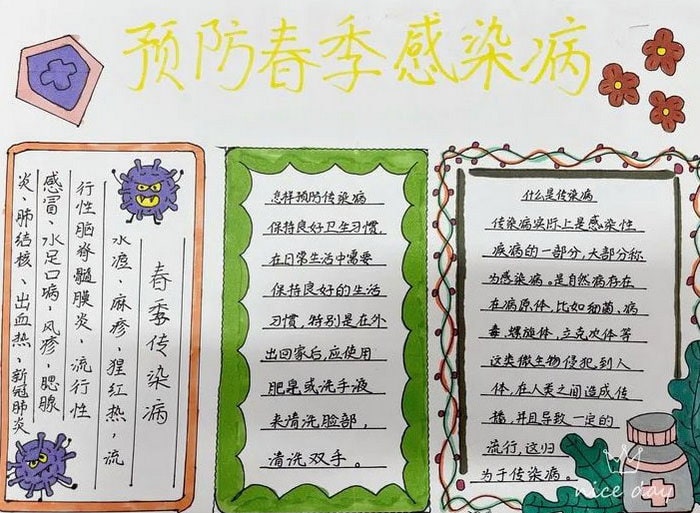 预防春季感染病
春季传染病
水痘、麻疹、猩红热、流
行性脑脊髓膜炎、流行性
感冒、水足口病、风疹、腮腺
炎、肺结核、出血热、新冠肺炎
怎样预防传染病
保持良好卫生习惯,
在日常生活中需要
保持良好的生活
习惯,特别是在外
出回家后,应使用
肥皂或洗手液
来清洗脸部,
清洗双手。
什么是传染病
传染病实际上是感染性
疾病的一部分,大部分称
为感染病。是自然病存在
在病原体,比如细菌、病
毒、螺旋体,立克次体等
这类微生物侵犯到人
体,在人类之间造成传
播,并且导致一定的
流行,这归
为于传染病。
nice day